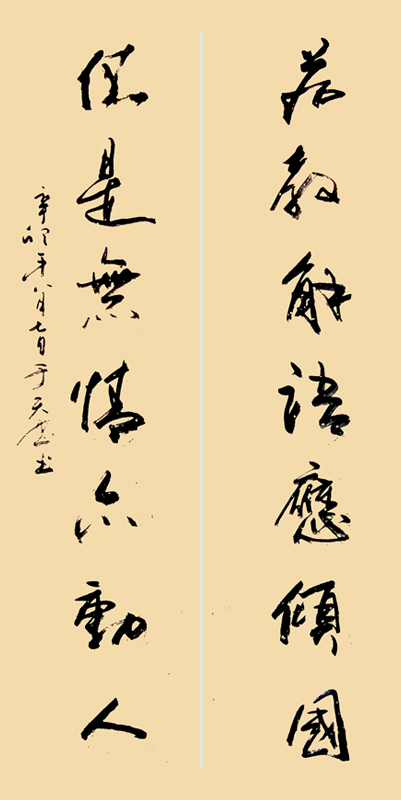 若教解語應傾國
任是無情亦動人
辛卯年八月七日于天书